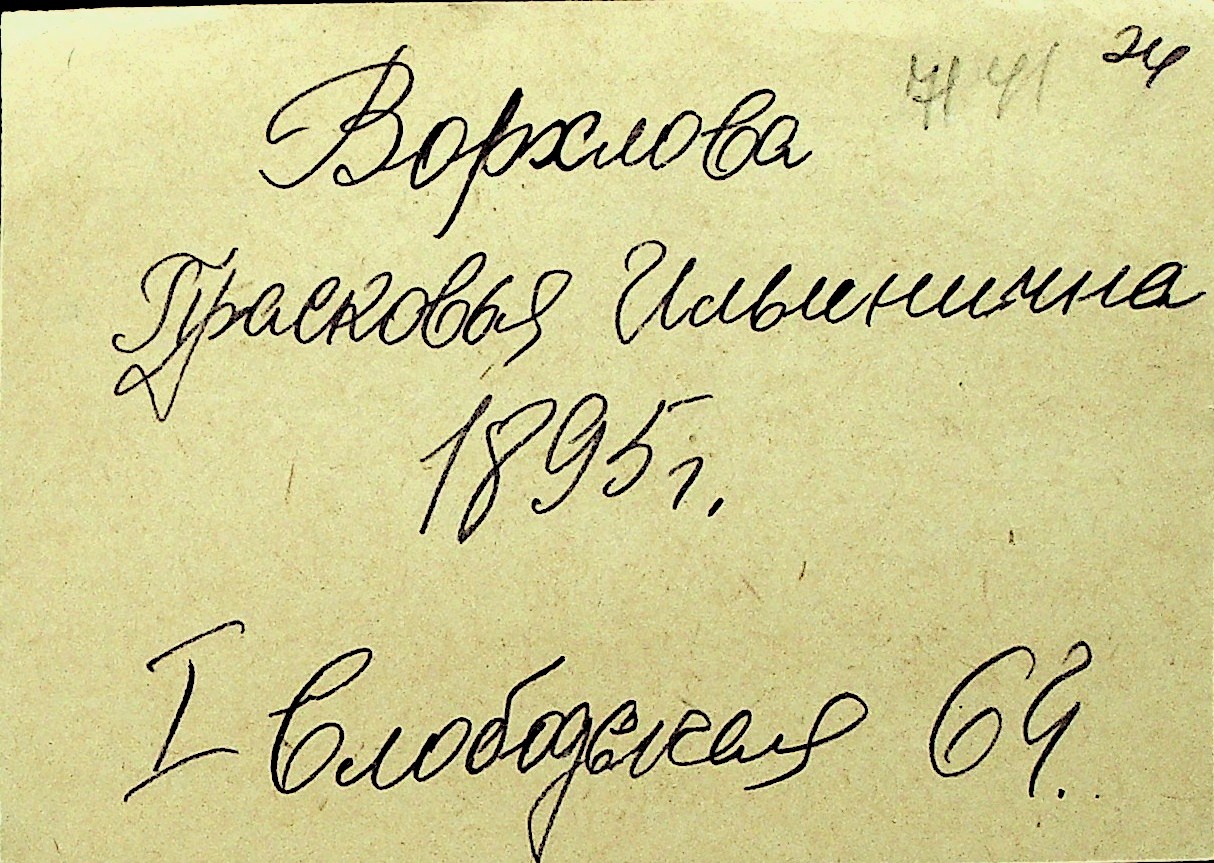 24
Ворхлова
Прасковья Ильинична
1895 г.
I Слободская 64.